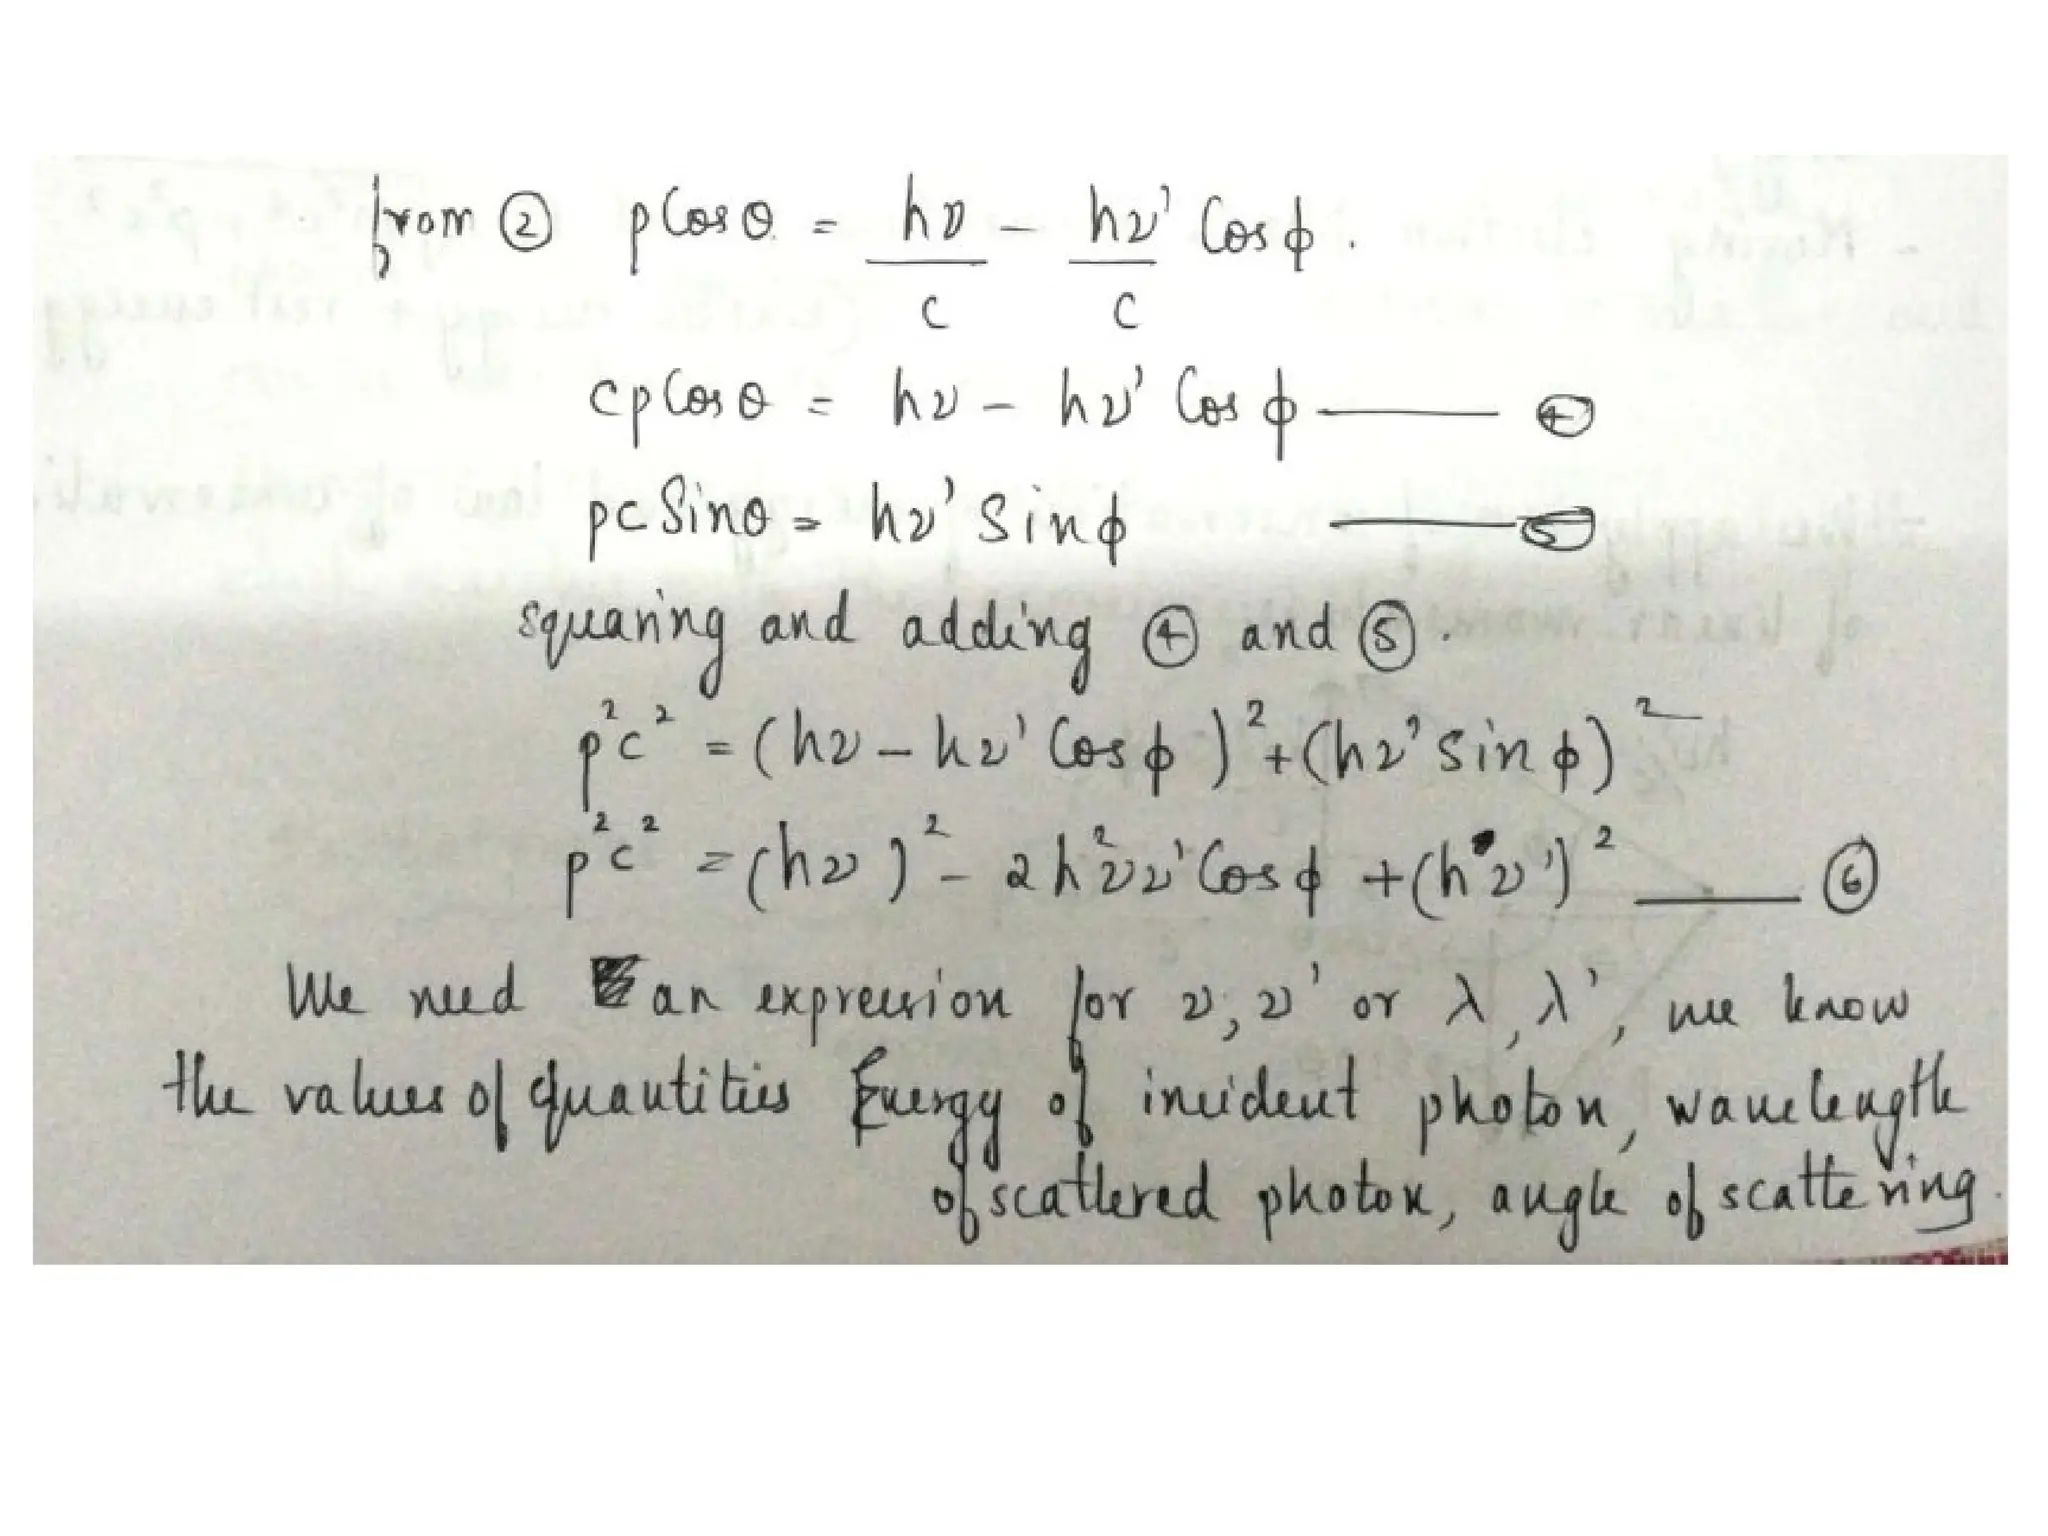 from ② pCosθ = hν/c - hν'/c Cosϕ.
cpCosθ = hν - hν' Cosϕ —— ④
pc Sinθ = hν' Sinϕ —— ⑤
squaring and adding ④ and ⑤.
p²c² = (hν - hν' Cosϕ)² + (hν' sinϕ)²
p²c² = (hν)² - 2h²νν' Cosϕ + (hν')² —— ⑥
We need an expression for ν, ν' or λ, λ', we know
the values of quantities Energy of incident photon, wavelength
of scattered photon, angle of scattering.